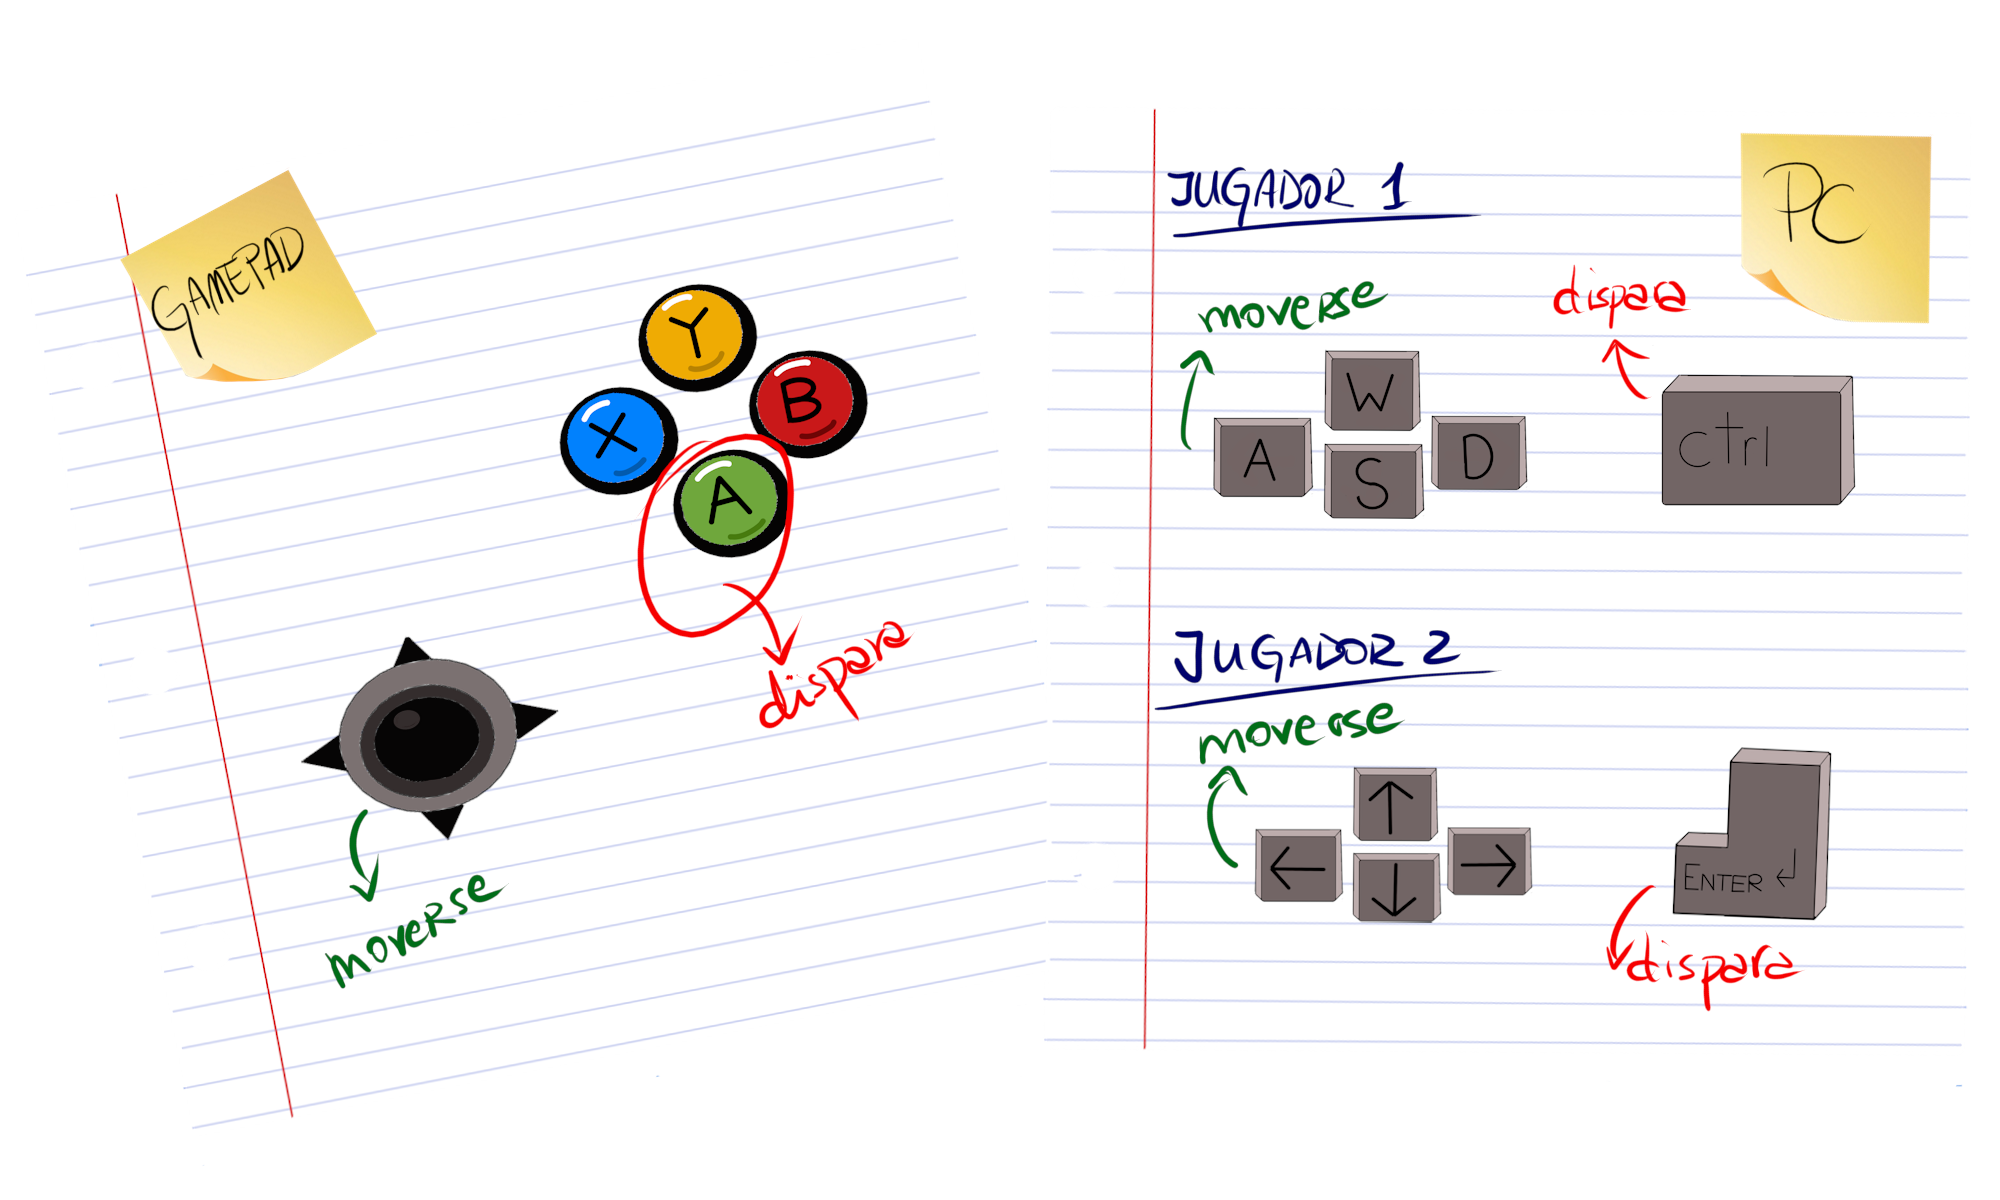 GAMEPAD
Y
B
X
A
dispara
moverse
PC
JUGADOR 1
moverse
dispara
W
A
S
D
ctrl
JUGADOR 2
moverse
↑
←
↓
→
ENTER ↵
dispara